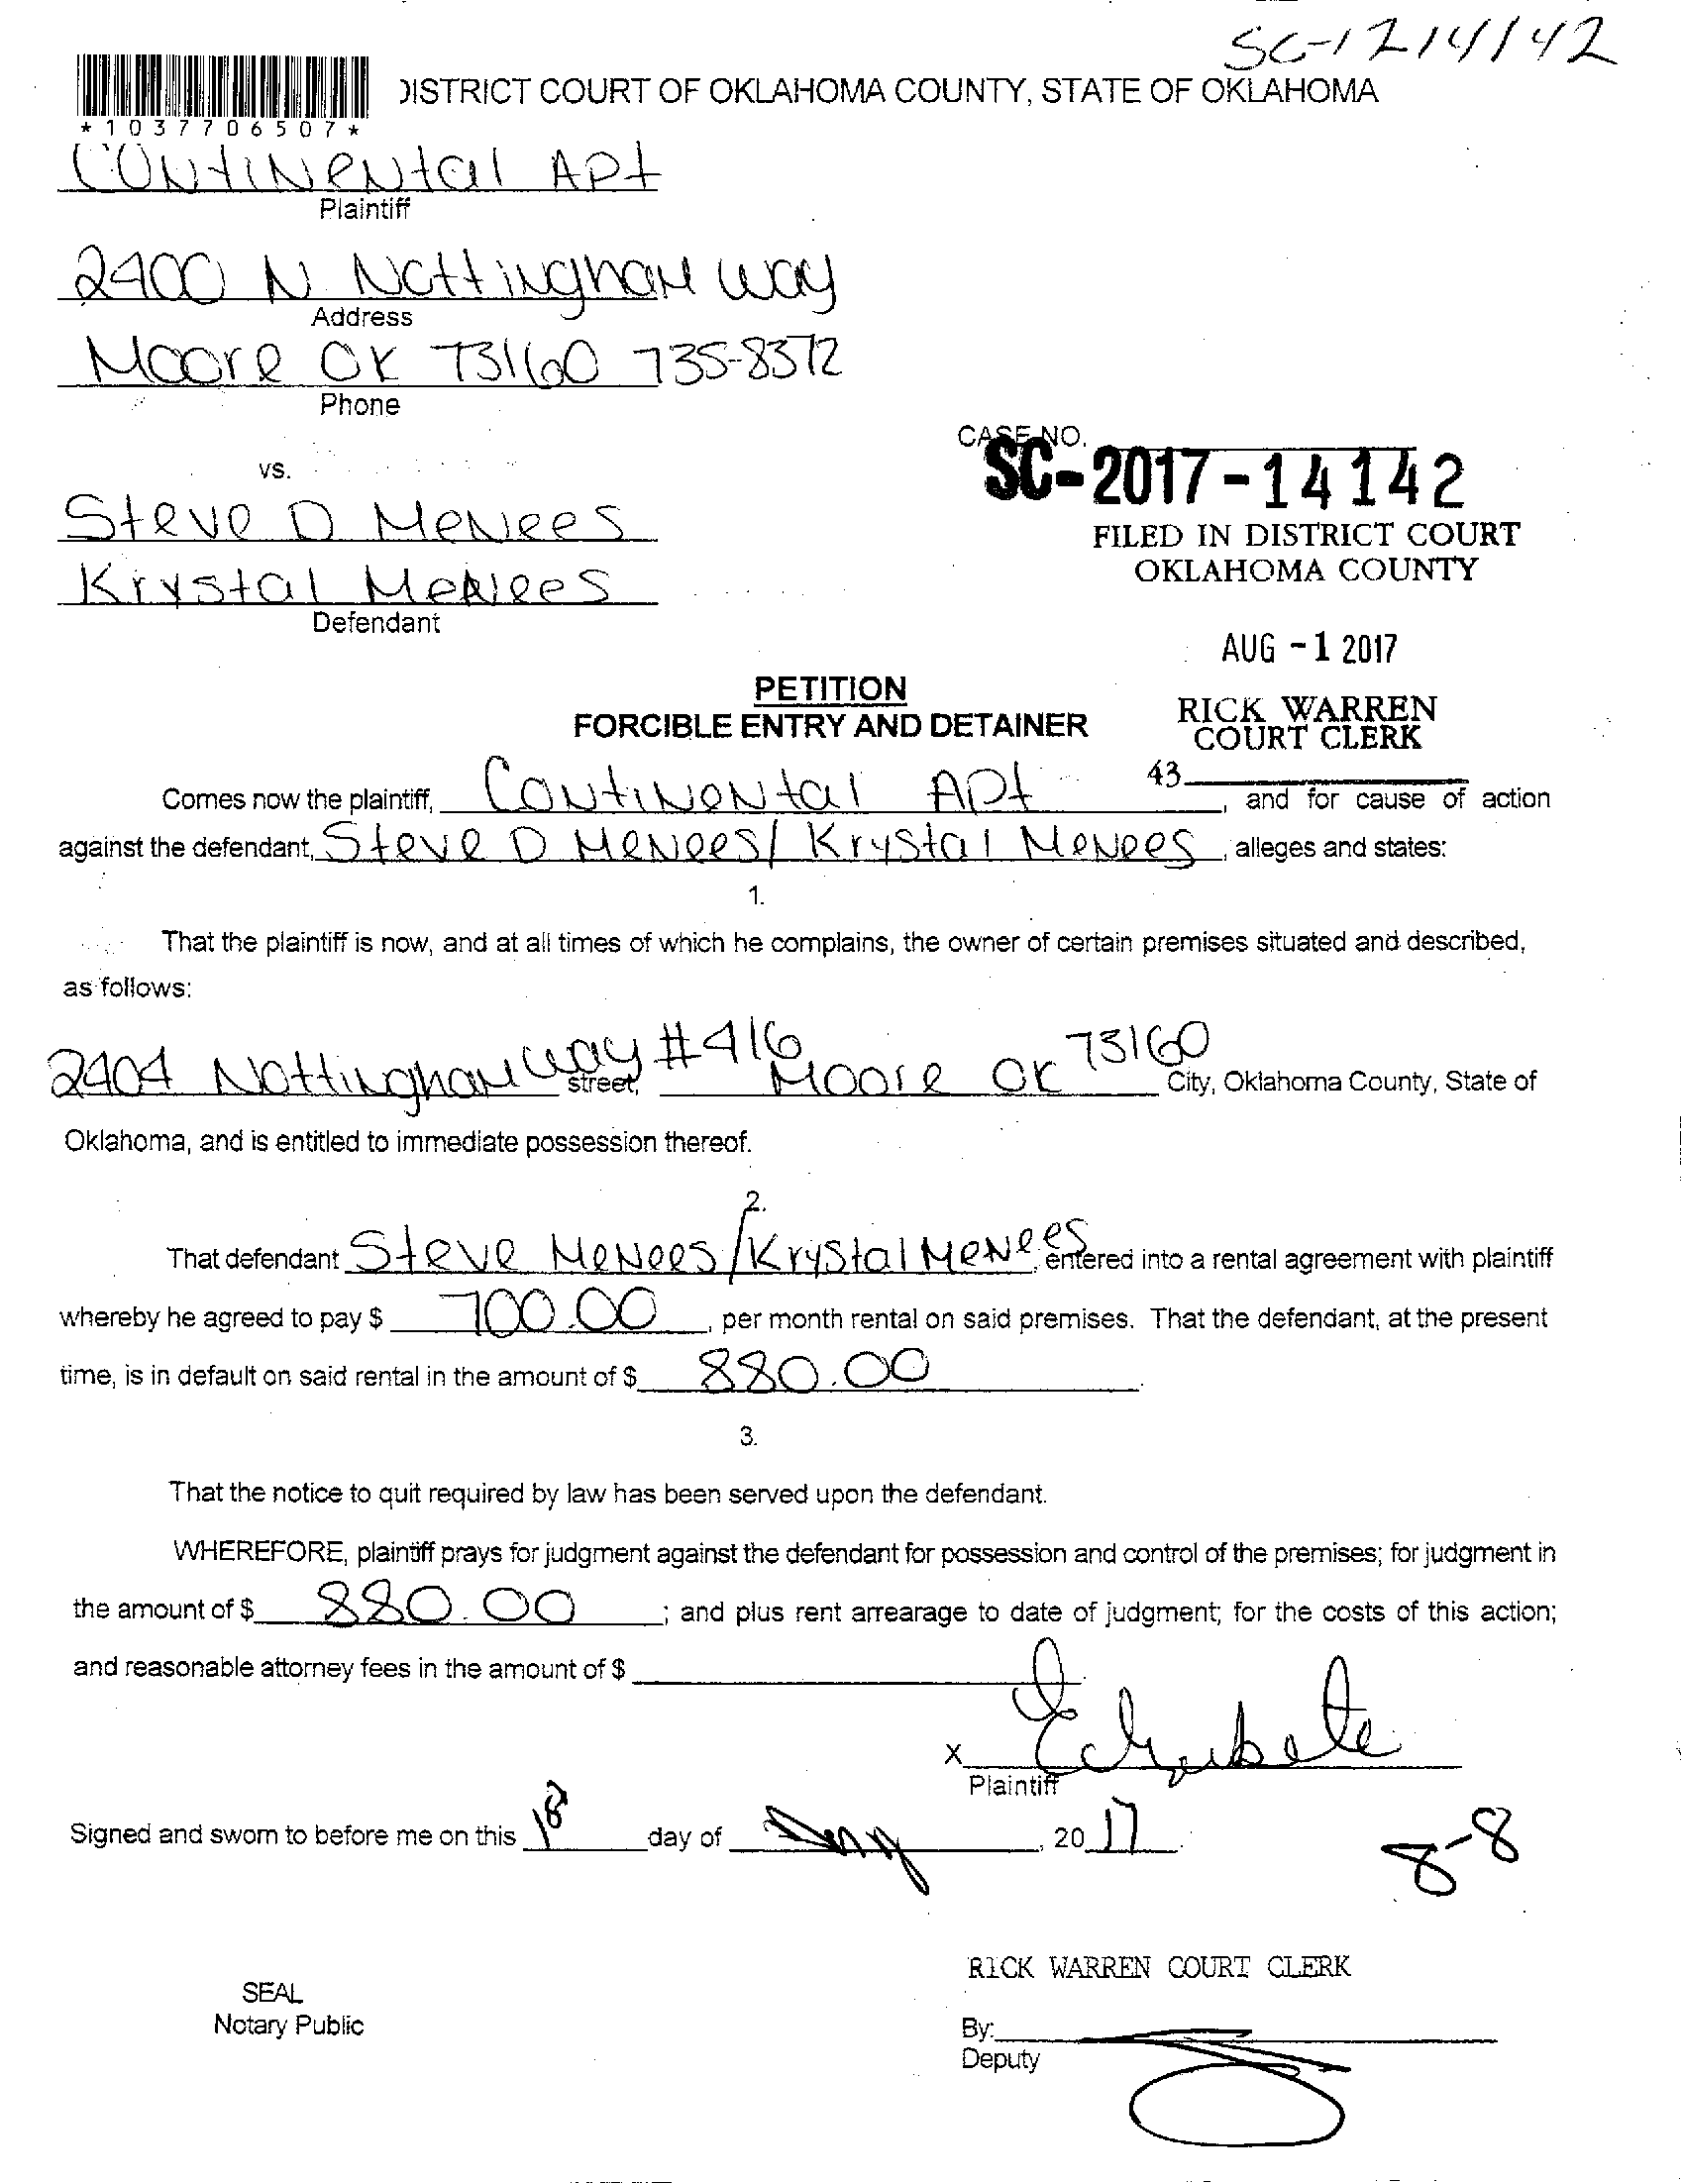 SC-1214142
DISTRICT COURT OF OKLAHOMA COUNTY, STATE OF OKLAHOMA
*1037706507*
Continental Apt
Plaintiff
2400 N Nottingham Way
Address
Moore OK 73160 735-8372
Phone
CASE NO.
SC-2017-14142
vs.
Steve D Menees
FILED IN DISTRICT COURT
OKLAHOMA COUNTY
Krystal Menees
Defendant
AUG -1 2017
PETITION
FORCIBLE ENTRY AND DETAINER
RICK WARREN
COURT CLERK
43
Comes now the plaintiff, Continental Apt, and for cause of action
against the defendant, Steve D Menees/ Krystal Menees, alleges and states:
1.
That the plaintiff is now, and at all times of which he complains, the owner of certain premises situated and described,
as follows:
2404 Nottingham Way #416 street, Moore OK 73160 City, Oklahoma County, State of
Oklahoma, and is entitled to immediate possession thereof.
2.
That defendant Steve Menees/Krystal Menees, entered into a rental agreement with plaintiff
whereby he agreed to pay $ 700.00, per month rental on said premises. That the defendant, at the present
time, is in default on said rental in the amount of $ 880.00.
3.
That the notice to quit required by law has been served upon the defendant.
WHEREFORE, plaintiff prays for judgment against the defendant for possession and control of the premises; for judgment in
the amount of $ 880.00; and plus rent arrearage to date of judgment; for the costs of this action;
and reasonable attorney fees in the amount of $
X
Plaintiff
Signed and sworn to before me on this day of , 20 17.
8-8
RICK WARREN COURT CLERK
SEAL
Notary Public
By:
Deputy